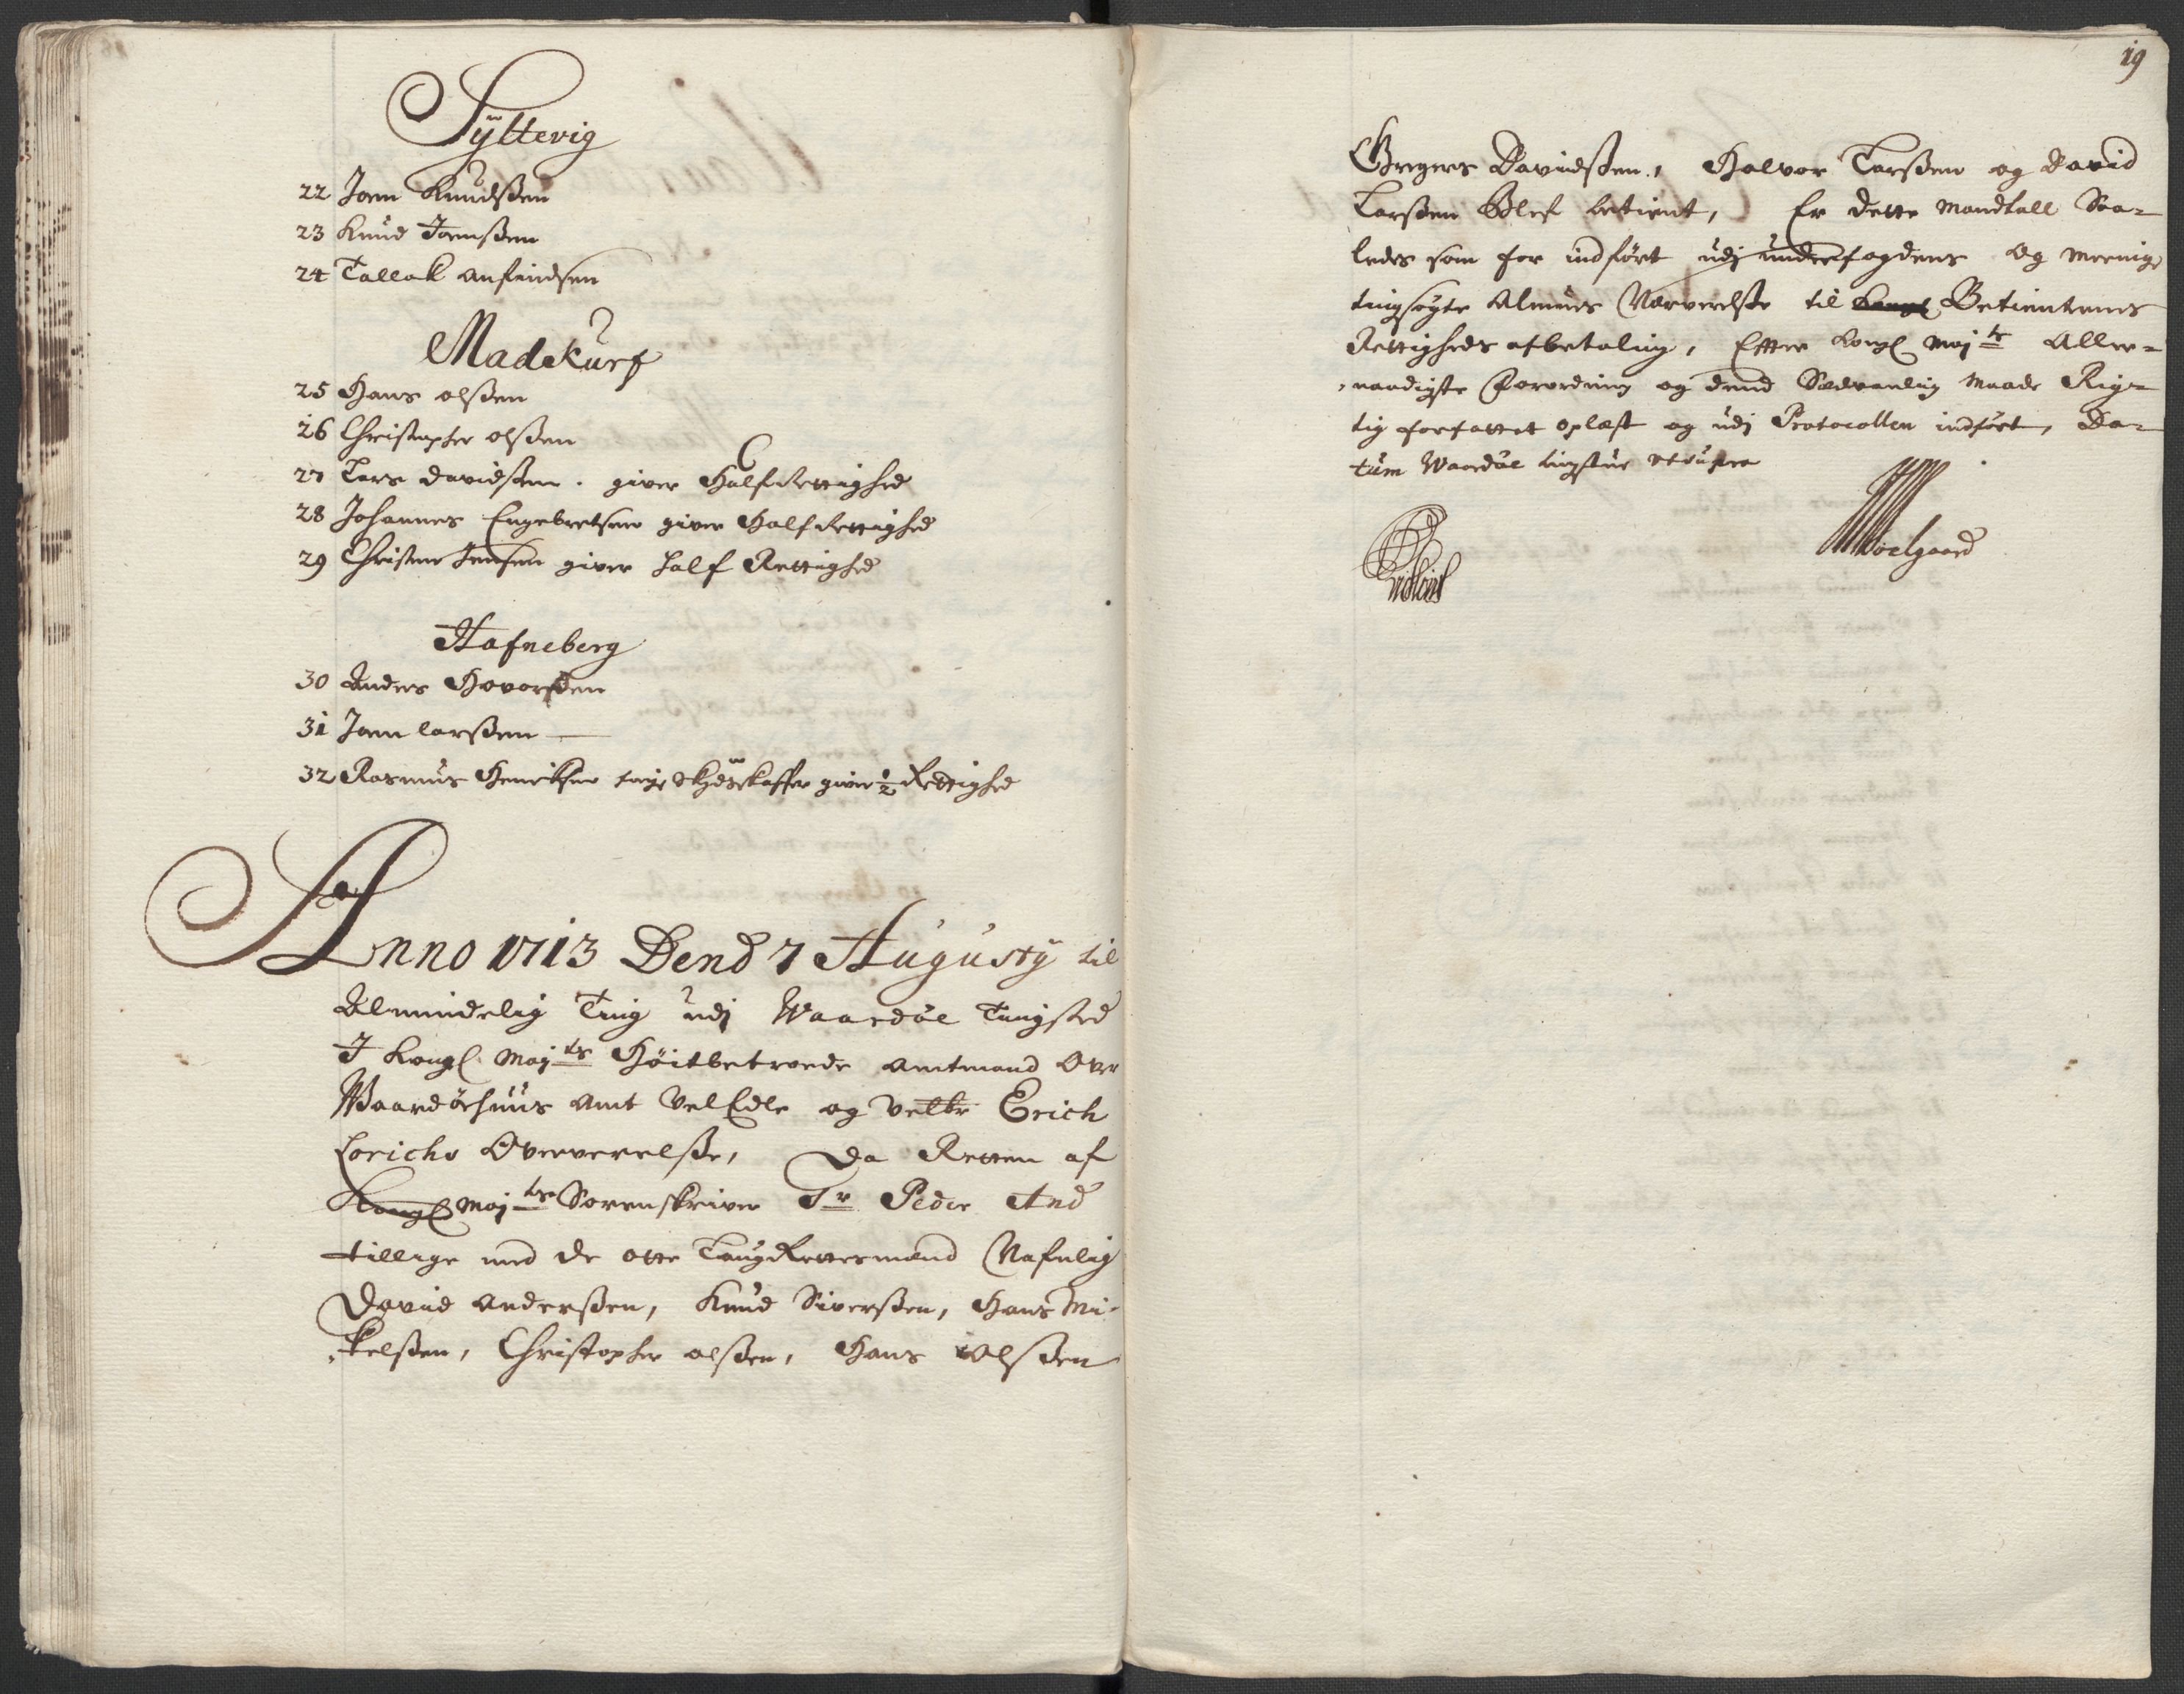 Syltevig
22 Joen Knudsßen
23 Knud Joensßen
24 Tallak Anfindsen
Madekurf
25 Hans olsßen
26 Christopher olsßen
27 Lars davidsßen. giver Half Rettighed
28 Johannes Engebretsen giver Half Rettighed
29 Christen Jensen giver half Rettighed
Hafneberg
30 Anders Hovorsßen
31 Joen larsßen
32 Rasmus Henriksen giver ½ Rettighed
Anno 1713 Dend 7 Augusty til
Almindelig Ting udj Waardöe Tingsted
I Kongl. Maj ts Höitbetroede Amtmand Over
Waardöehuus Amt VelEdle og Velbr Erich
Lorichs Oververelsße, Da Retten af
Kongl Maj ts Sorenskriver Sr Peder And
tillige med de otte LaugRettesmænd Nafnlig
David Andersßen, Knud Siversßen, Hans Mi-
kelsßen, Christopher olsßen, Hans Olsßen
19
Gregers Davidsßen, Halvor Larsßen og David
Larsßen Blef betient, Er dette Mandtall Saa-
ledes som for indført udj underfogdens Og Meenige
tingsøgte Almues Nærverelsße til Kongl Betienternes
Rettigheds afbetaling, Efter Kongl Maj ts Aller-
naadigste Forordning og dend Sædvanlig Maade Rig-
tig forfattet oplæst og udj Protocollen indført, Da-
tum Waardöe tingstue ut supra